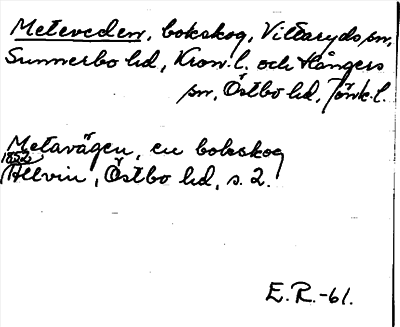 Meteveden, bokskog, Vittaryds sn,
Sunnerbo hd, Kron. l. och Hångers
sn, Östbo hd, Jönk. l.
Metavägen, en bokskog
1852
Allvin, Östbo hd, s. 2.
E. R. -61.